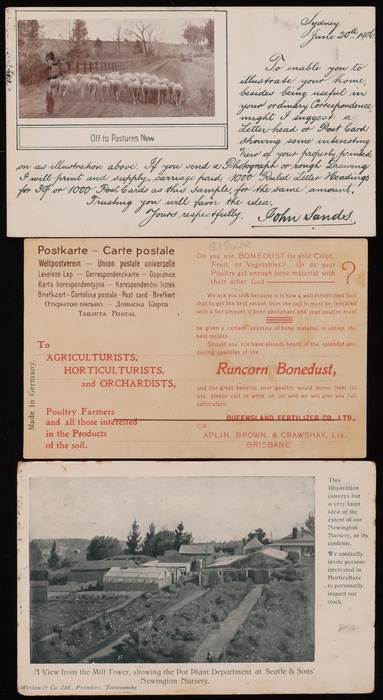 Sydney
June 20th, 1906
Off to Pastures New.
To enable you to
illustrate your home,
besides being useful in
your ordinary Correspondence,
might I suggest a
Letter head or Post Card
showing some interesting
View of your property, printed
on as illustration above. If you send a Photograph or rough Drawing
I will print and supply, carriage paid, 1000 Ruled Letter Headings
for 30/- or 1000 Post Cards as this sample, for the same amount.
Trusting you will favor the idea.
Yours, respectfully, John Sands.
Postkarte – Carte postale
Weltpostverein – Union postale universelle
Levelező-Lap – Correspondenzkarte – Dopisnice
Karta korespondencyjna – Korespondenční lístek
Briefkaart – Cartolina postale – Post card – Brefkort
Открытое письмо – Дописна Карта
Tarjeta Postal
Made in Germany.
To
AGRICULTURISTS,
HORTICULTURISTS,
and ORCHARDISTS,
Poultry Farmers
and all those interested
in the Products
of the soil.
Do you use BONEDUST for your Crops,
Fruit, or Vegetables? Or do your
Poultry get enough bone material with
their other food ?
We ask you this because it is now a well established fact
that to get the best return from the soil it must be fertilised
with a fair amount of bone phosphate and your poultry must
be given a certain quantity of bone material to obtain the
best results.
Should you not have already heard of the splendid pro-
ducing qualities of the
Runcorn Bonedust,
and the great benefits your poultry would derive from its
use, please call or write on us and we will give you full
particulars.
QUEENSLAND FERTILIZER CO. LTD.,
C/o
APLIN, BROWN, & CRAWSHAY, Ltd.,
BRISBANE
This
Illustration
conveys but
a very faint
idea of the
extent of our
Newington
Nursery, or its
contents.
We cordially
invite persons
interested in
Horticulture
to personally
inspect our
stock.
A View from the Mill Tower, showing the Pot Plant Department at Searle & Sons'
Newington Nursery.
Weston & Co. Ltd., Printers, Toowoomba